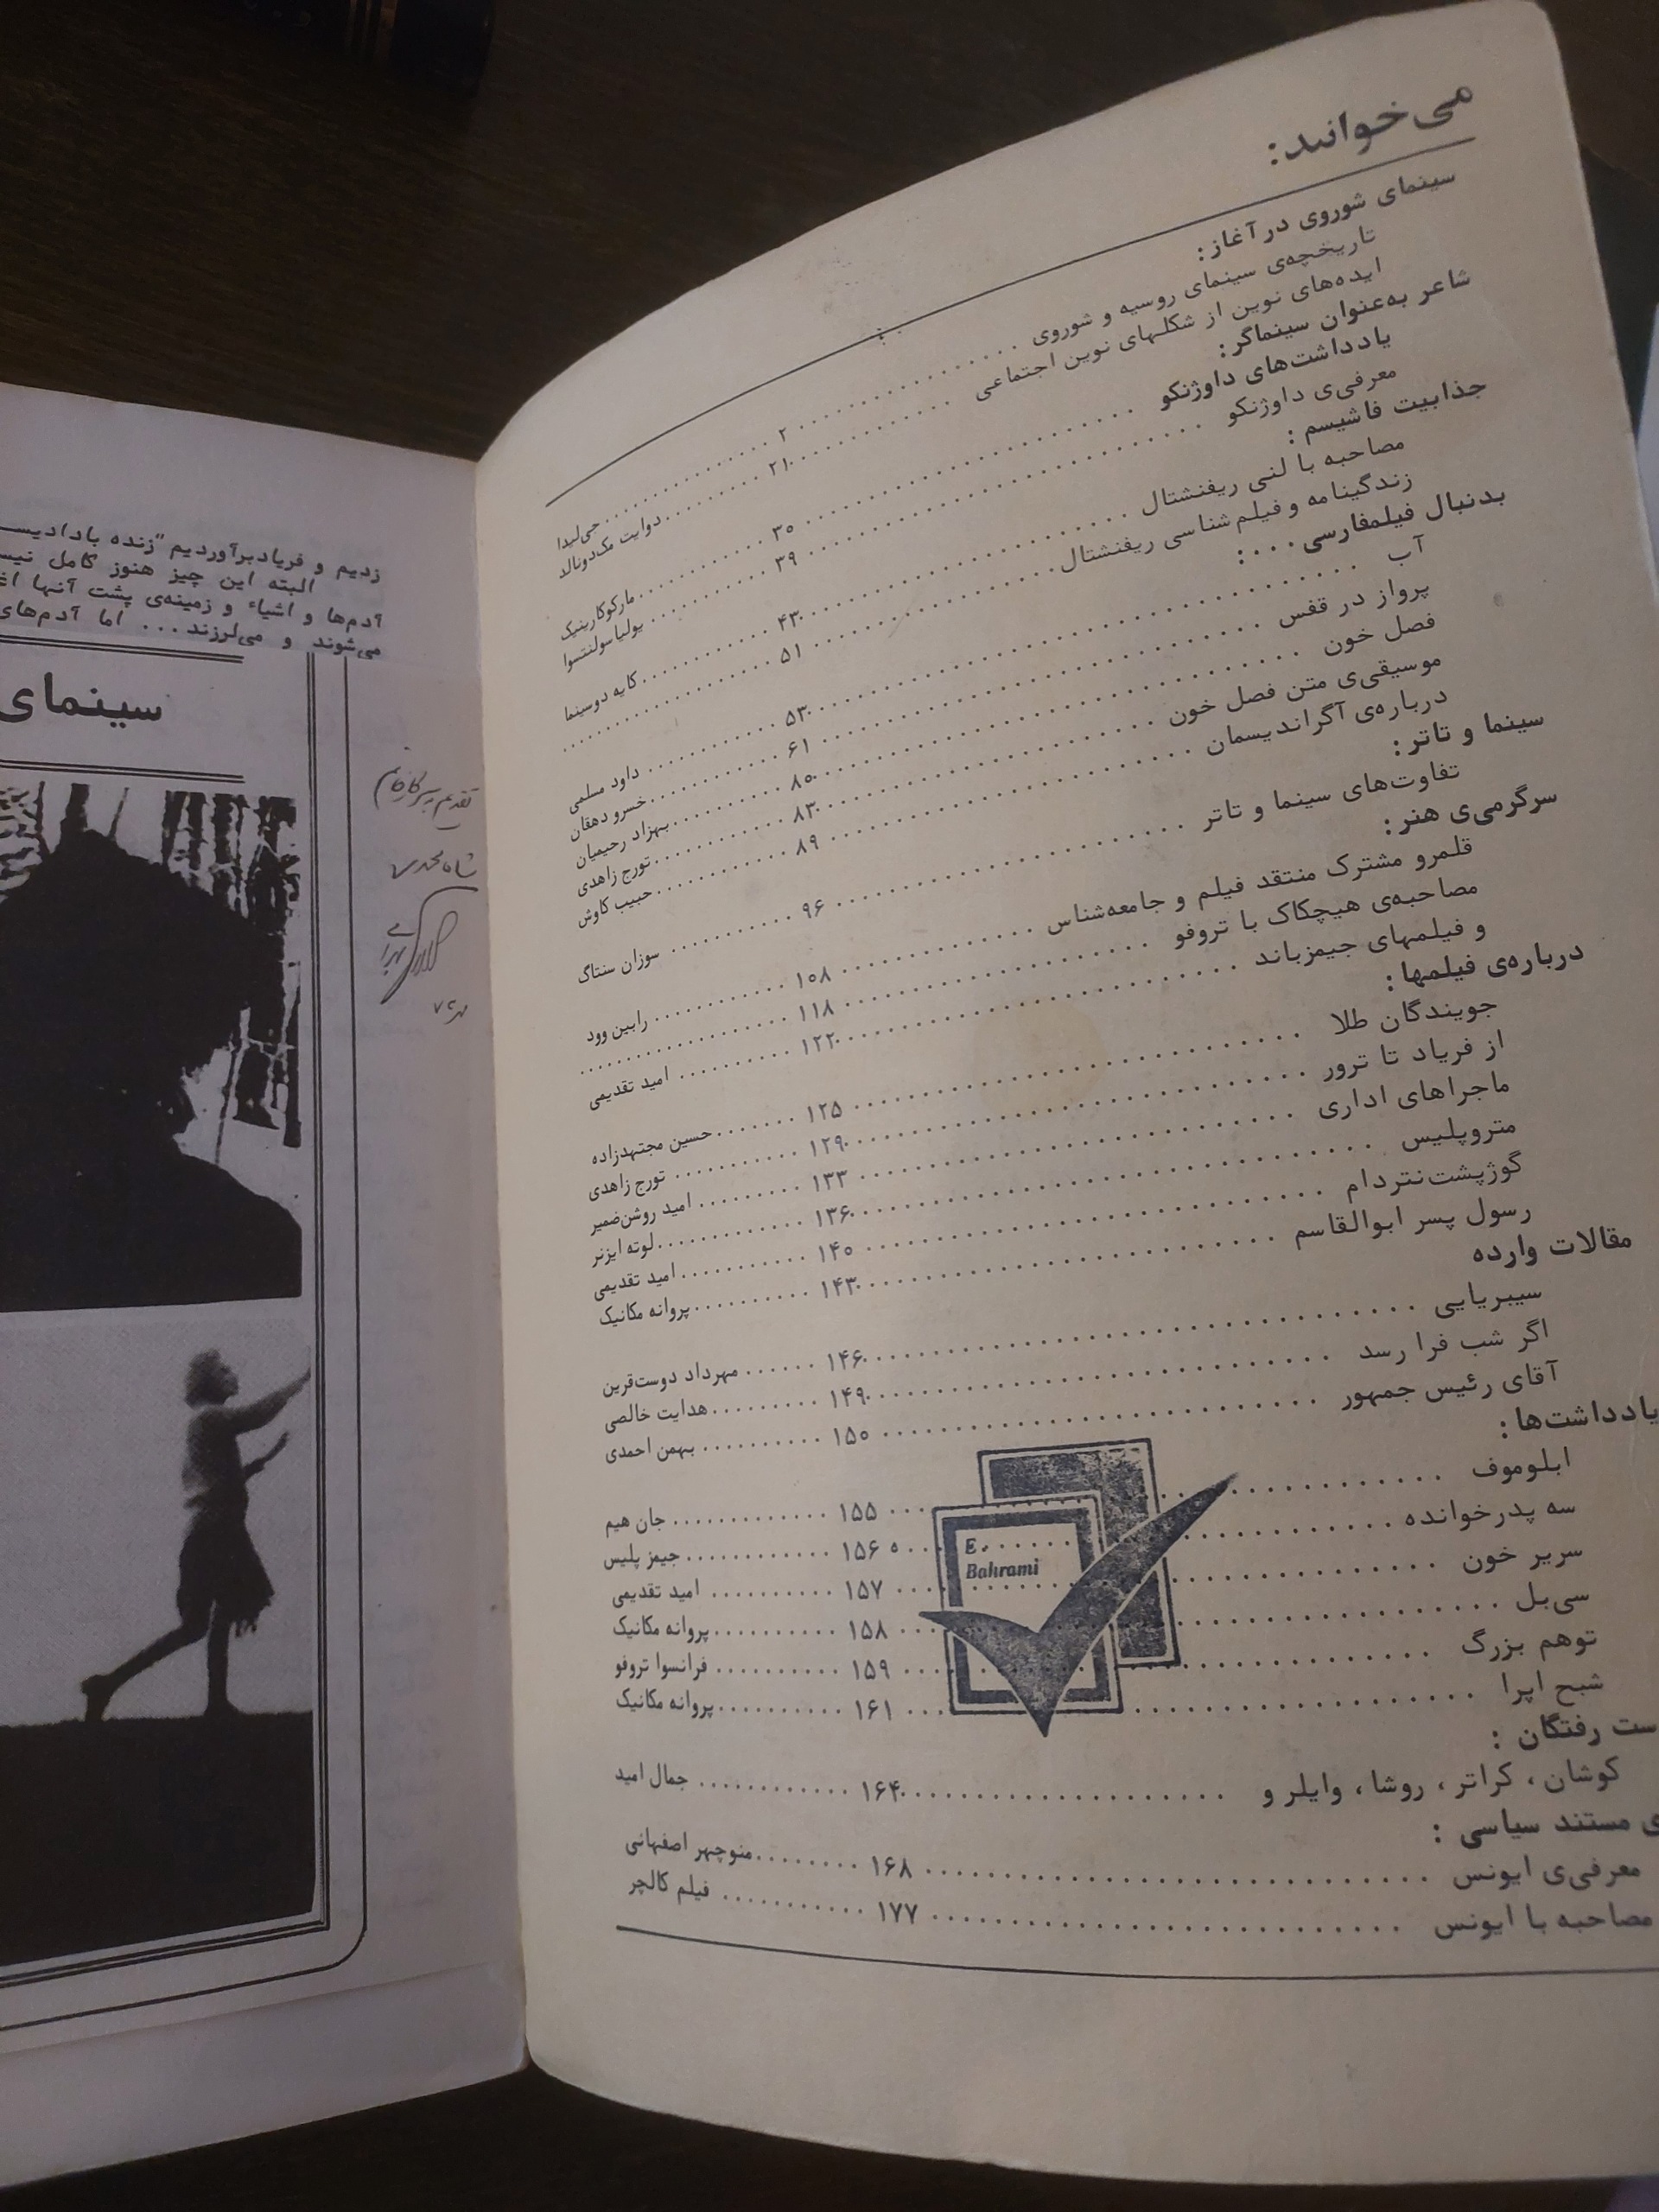 می‌خوانید:
سینمای شوروی در آغاز:
تاریخچه‌ی سینمای روسیه و شوروی ........ ۲ ........ جی‌لیدا
ایده‌های نوین از شکلهای نوین اجتماعی ........ ۲۱ ........ دوایت مک‌دونالد
شاعر به‌عنوان سینماگر:
یادداشت‌های داوژنکو ........ ۳۰ ........ مارکوکارینیک
معرفی‌ی داوژنکو ........ ۳۹ ........ یولیا سولنتسوا
جذابیت فاشیسم:
مصاحبه با لنی ریفنشتال ........ ۴۳ ........ کایه دوسینما
زندگینامه و فیلم‌شناسی ریفنشتال ........ ۵۱ ........
بدنبال فیلمفارسی...:
آب ........ ۵۳ ........ داود مسلمی
پرواز در قفس ........ ۶۱ ........ خسرو دهقان
فصل خون ........ ۸۰ ........ بهزاد رحیمیان
موسیقی‌ی متن فصل خون ........ ۸۳ ........ تورج زاهدی
درباره‌ی آگراندیسمان ........ ۸۹ ........ حبیب کاوش
سینما و تاتر:
تفاوت‌های سینما و تاتر ........ ۹۶ ........ سوزان سنتاگ
سرگرمی‌ی هنر:
قلمرو مشترک منتقد فیلم و جامعه‌شناس ........ ۱۰۸ ........ رابین وود
مصاحبه‌ی هیچکاک با تروفو ........ ۱۱۸ ........
و فیلمهای جیمزباند ........ ۱۲۲ ........ امید تقدیمی
درباره‌ی فیلمها:
جویندگان طلا ........ ۱۲۵ ........ حسین مجتهدزاده
از فریاد تا ترور ........ ۱۲۹ ........ تورج زاهدی
ماجراهای اداری ........ ۱۳۳ ........ امید روشن‌ضمیر
متروپلیس ........ ۱۳۶ ........ لوته ایزنر
گوژپشت‌نتردام ........ ۱۴۰ ........ امید تقدیمی
رسول پسر ابوالقاسم ........ ۱۴۳ ........ پروانه مکانیک
مقالات وارده
سیبریایی ........ ۱۴۶ ........ مهرداد دوست‌قرین
اگر شب فرا رسد ........ ۱۴۹ ........ هدایت خالصی
آقای رئیس جمهور ........ ۱۵۰ ........ بهمن احمدی
یادداشت‌ها:
ابلوموف ........ ۱۵۵ ........ جان هیم
سه پدرخوانده ........ ۱۵۶ ........ جیمز پلیس
سریر خون ........ ۱۵۷ ........ امید تقدیمی
سی‌بل ........ ۱۵۸ ........ پروانه مکانیک
توهم بزرگ ........ ۱۵۹ ........ فرانسوا تروفو
شبح اپرا ........ ۱۶۱ ........ پروانه مکانیک
ست رفتگان:
کوشان، کراتر، روشا، وایلر و ........ ۱۶۴ ........ جمال امید
ی مستند سیاسی:
معرفی‌ی ایونس ........ ۱۶۸ ........ منوچهر اصفهانی
مصاحبه با ایونس ........ ۱۷۷ ........ فیلم کالچر
E.
Bahrami
زدیم و فریادبرآوردیم "زنده بادادیسـ
البته این چیز هنوز کامل نیسـ
آدم‌ها و اشیاء و زمینه‌ی پشت آنها
می‌شوند و می‌لرزند... اما آدم‌های
سینمای